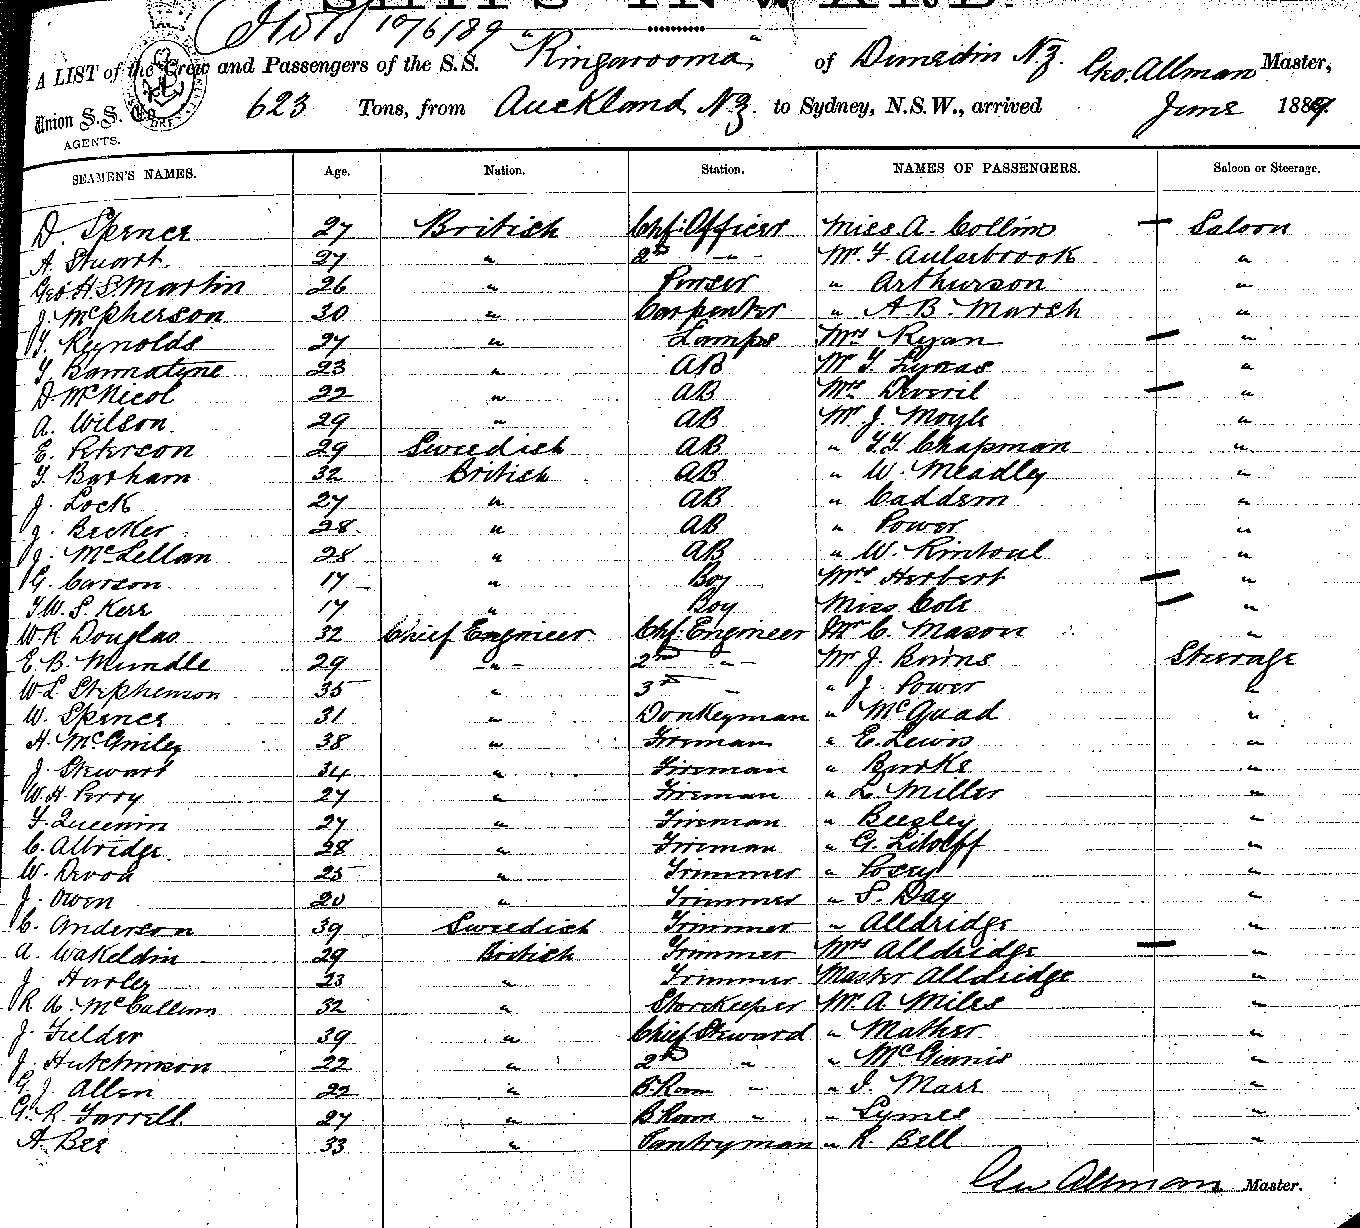 SHIPS INWARD.
10/6/89
A LIST of the Crew and Passengers of the S.S. "Ringarooma" of Dunedin N.Z. Geo. Allman Master,
Union S.S. Co. 623 Tons, from Auckland N.Z. to Sydney, N.S.W., arrived June 1889
AGENTS.
SEAMEN'S NAMES. Age. Nation. Station. NAMES OF PASSENGERS. Saloon or Steerage.
D. Spence 27 British Chf. Officer Miss A. Collins — Saloon
A. Stuart 27 " 2nd - " - Mr. F Aulsebrook "
Geo H. S Martin 26 " Purser " Arthurson "
J. McPherson 30 " Carpenter " A B. Marsh "
T. Reynolds 27 " Lamps Mrs Ryan — "
T. Bannatyne 23 " AB Mr T. Lynas "
D McNicol 22 " AB Mrs Deveril — "
A. Wilson 29 " AB Mr J. Moyle "
E. Peterson 29 Swedish AB " T.T. Chapman "
T. Barham 32 British AB " W. Meadley "
J. Lock 27 " AB " Caddem "
J. Becker 28 " AB " Power "
J. McLellan 28 " AB " W. Rintoul "
G. Carson 17 " Boy Mrs Herbert — "
T W. S. Kerr 17 " Boy Miss Cole — "
W. R Douglas 32 Chief Engineer Chf. Engineer Mr C. Mason "
E. B. Mundle 29 - " - 2nd - " - Mr J. Burns Steerage
W L Stephenson 35 " 3rd " " J. Power "
W. Spence 31 " Donkeyman " McQuad "
H. McGinley 38 " Fireman " E. Lewis "
J. Stewart 34 " Fireman " Burke "
W. H. Perry 27 " Fireman " L. Miller "
F. Queenin 27 " Fireman " Beesley "
C. Albridge 28 " Fireman " G. Litolff "
W. Devon 25 " Trimmer " Posey "
J. Owen 20 " Trimmer " S. Day "
C. Anderson 39 Swedish Trimmer " Alldridge "
A. Wakeldin 29 British Trimmer Mrs Alldridge — "
J. Hurley 23 " Trimmer Master Alldridge "
R. A. McCallum 32 " Storekeeper Mr. A Miles "
J. Fielder 39 " Chief Steward " Mather "
J. Hutchinson 22 " 2nd " " McGinnis "
G. J Allen 22 " B. Room " " J. Marr "
G. R. Farrell 27 " B Room " " Lymes "
A. Bee 33 " Pantryman " R. Bell "
Geo Allman Master.